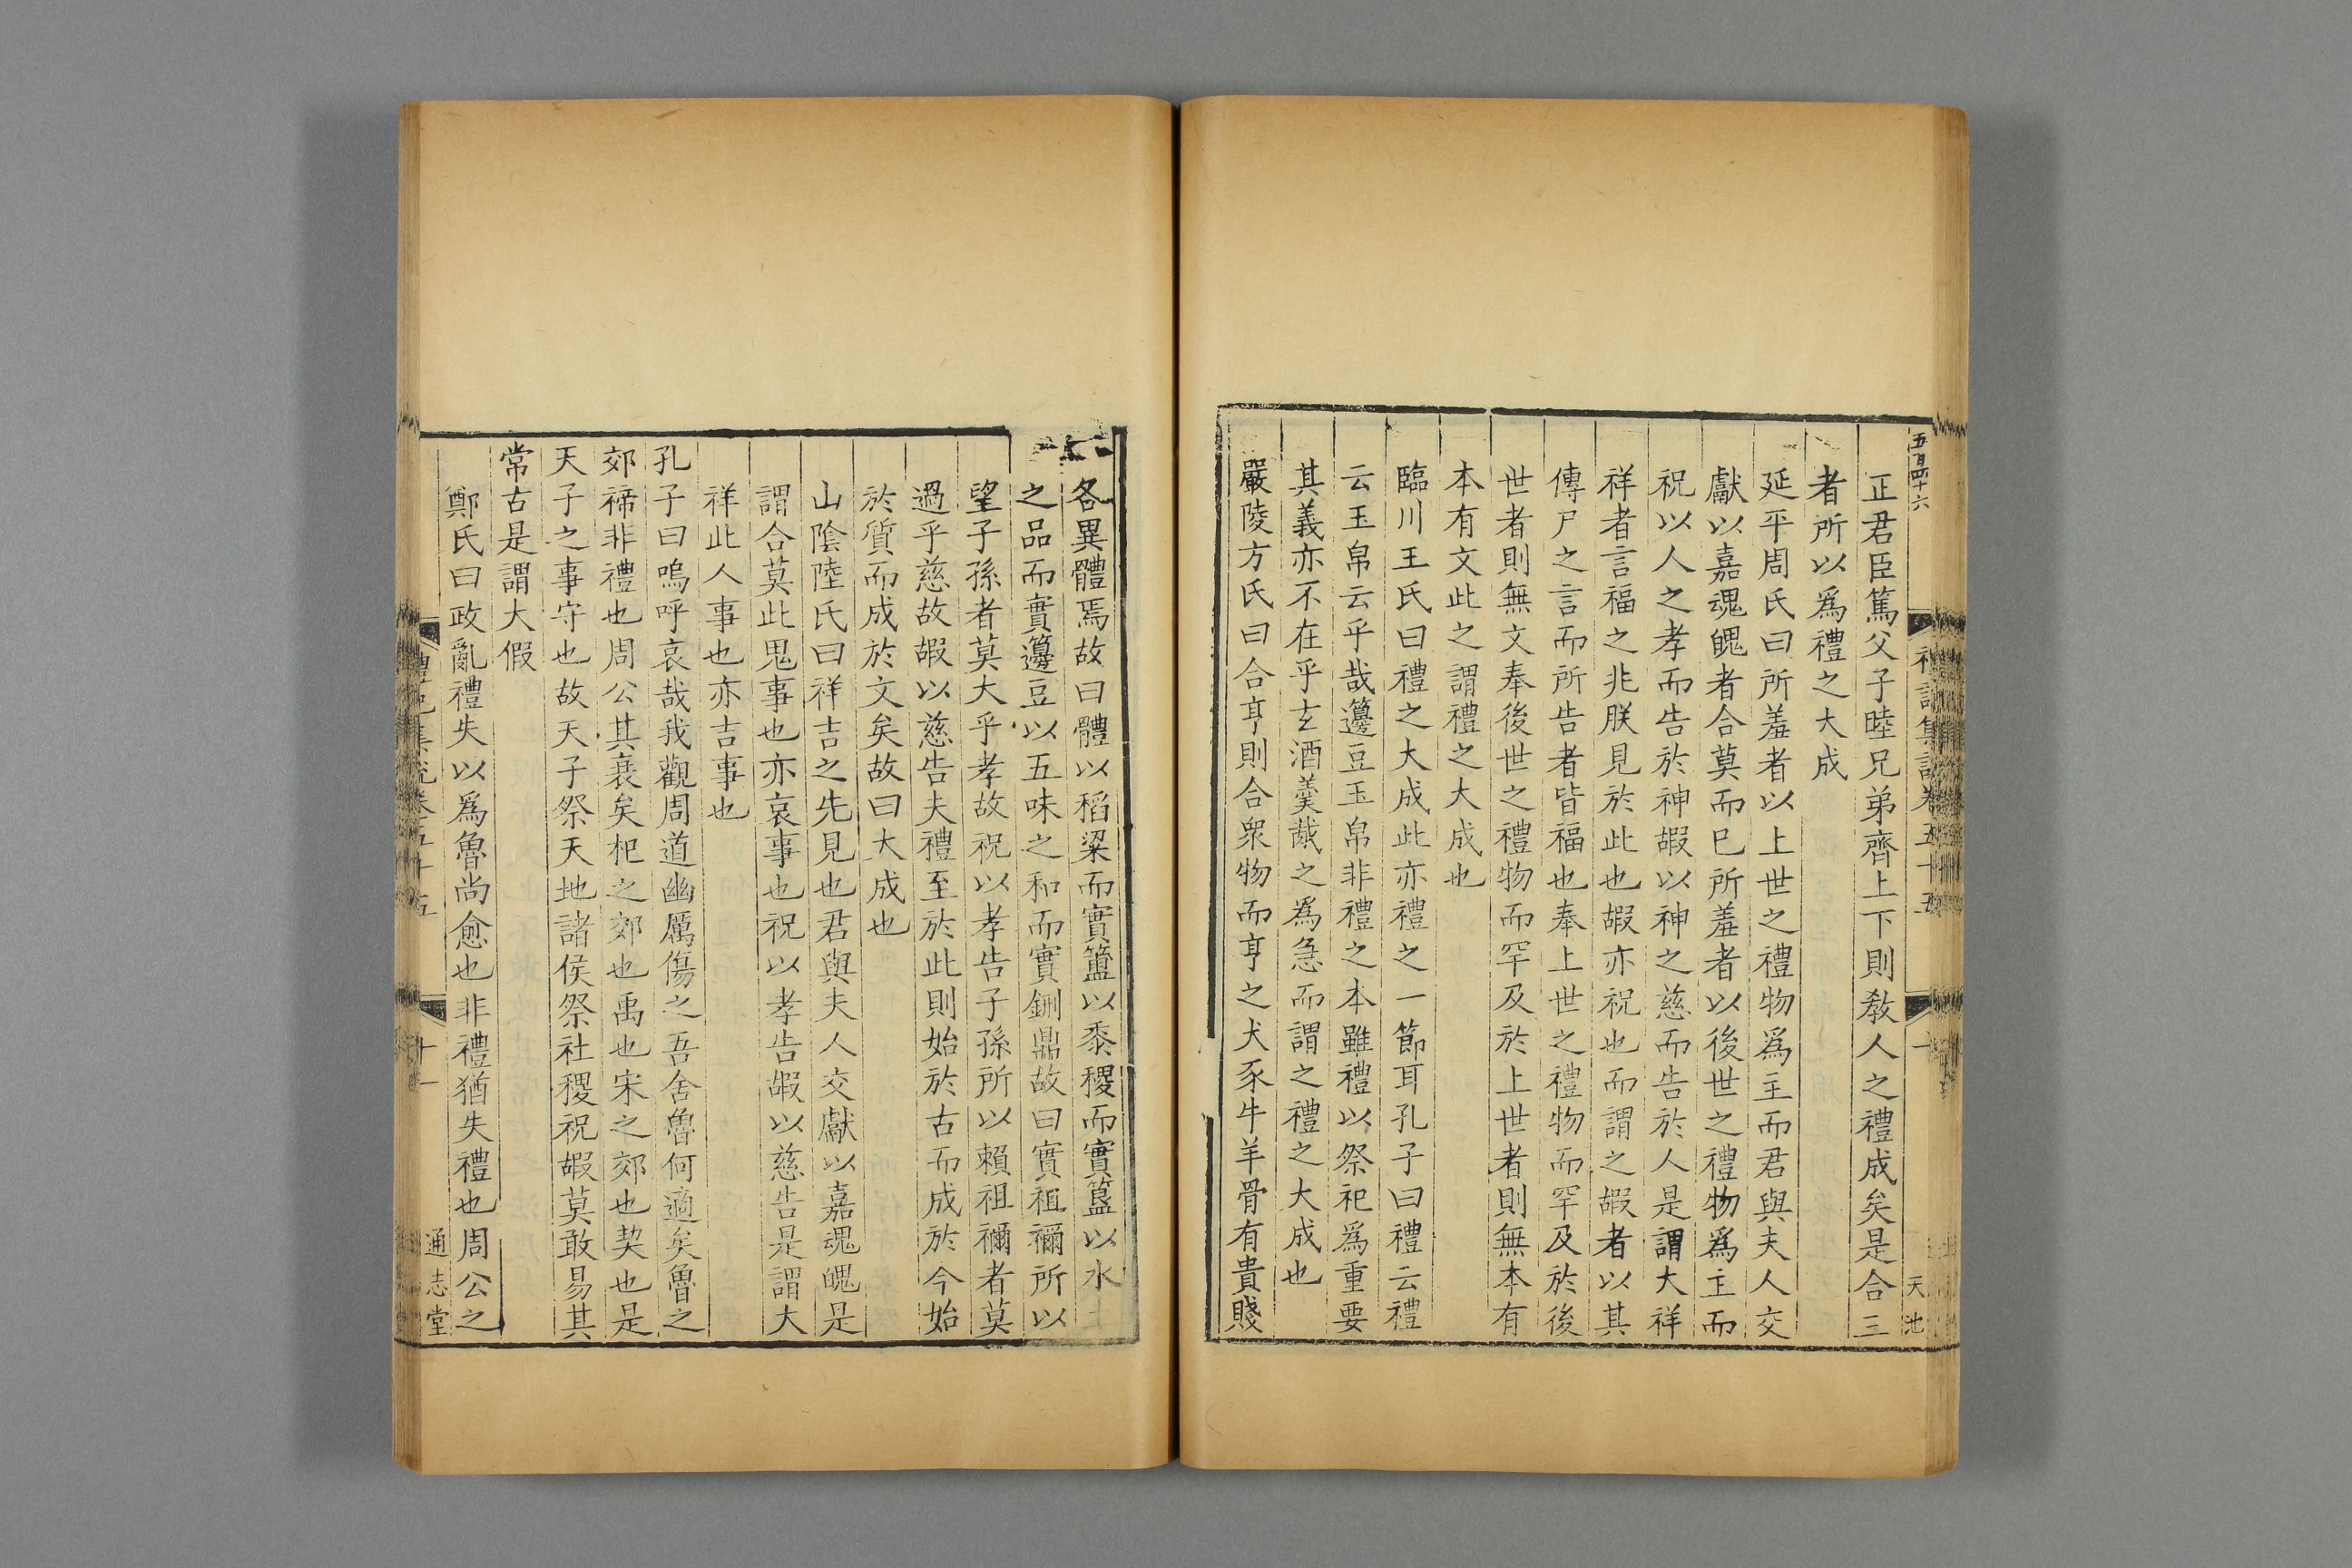 五百四十六
禮記集說卷五十五
十一
天池
正君臣篤父子睦兄弟齊上下則敎人之禮成矣是合三
者所以爲禮之大成
延平周氏曰所羞者以上世之禮物爲主而君與夫人交
獻以嘉魂魄者合莫而已所羞者以後世之禮物爲主而
祝以人之孝而告於神嘏以神之慈而告於人是謂大祥
祥者言福之兆朕見於此也嘏亦祝也而謂之嘏者以其
傳尸之言而所告者皆福也奉上世之禮物而罕及於後
世者則無文奉後世之禮物而罕及於上世者則無本有
本有文此之謂禮之大成也
臨川王氏曰禮之大成此亦禮之一節耳孔子曰禮云禮
云玉帛云乎哉籩豆玉帛非禮之本雖禮以祭祀爲重要
其義亦不在乎玄酒羹胾之爲急而謂之禮之大成也
嚴陵方氏曰合亨則合衆物而亨之犬豕牛羊骨有貴賤
各異體焉故曰體以稻粱而實簠以黍稷而實簋以水土
之品而實籩豆以五味之和而實鉶鼎故曰實祖禰所以
望子孫者莫大乎孝故祝以孝告子孫所以賴祖禰者莫
過乎慈故嘏以慈告夫禮至於此則始於古而成於今始
於質而成於文矣故曰大成也
山陰陸氏曰祥吉之先見也君與夫人交獻以嘉魂魄是
謂合莫此鬼事也亦哀事也祝以孝告嘏以慈告是謂大
祥此人事也亦吉事也
孔子曰嗚呼哀哉我觀周道幽厲傷之吾舍魯何適矣魯之
郊禘非禮也周公其衰矣杞之郊也禹也宋之郊也契也是
天子之事守也故天子祭天地諸侯祭社稷祝嘏莫敢易其
常古是謂大假
鄭氏曰政亂禮失以爲魯尚愈也非禮猶失禮也周公之
禮記集說卷五十五
十一
通志堂